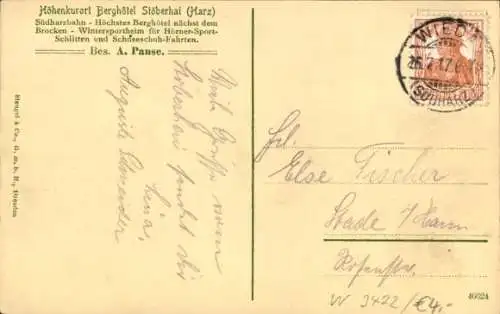 Höhenkurort Berghôtel Stöberhai (Harz)
Südharzbahn - Höchstes Berghôtel nächst dem
Brocken - Wintersportheim für Hörner-Sport-
Schlitten und Schneeschuh-Fahrten.
Bes. A. Pause.
Viele Grüße vom
Stöberhai sendet Dir
Lina.
Auguste Schneider
Stengel & Co., G. m. b. H., Dresden
WIEDA
(SÜDHARZ)
Frl.
Else Fischer
Stade i/Hann
Rosenstr.
W 3422/€4,-
46924